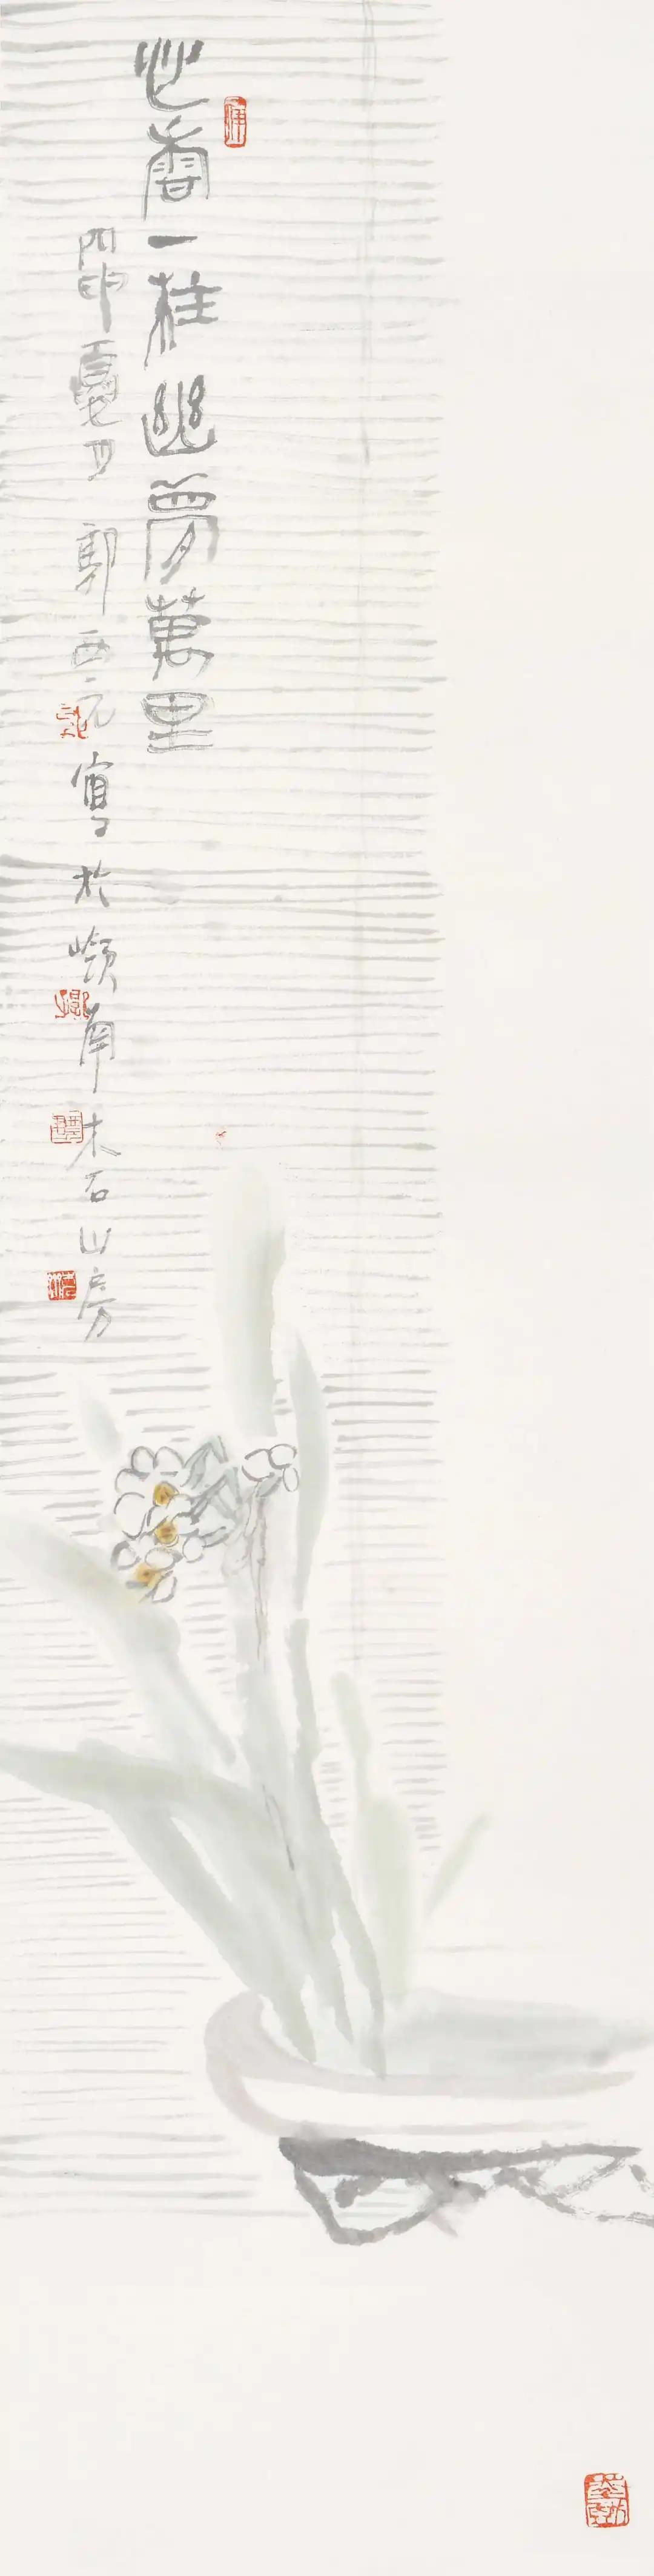 心香一炷幽夢萬里
丙申夏月郭西元寫於嶺南木石山房